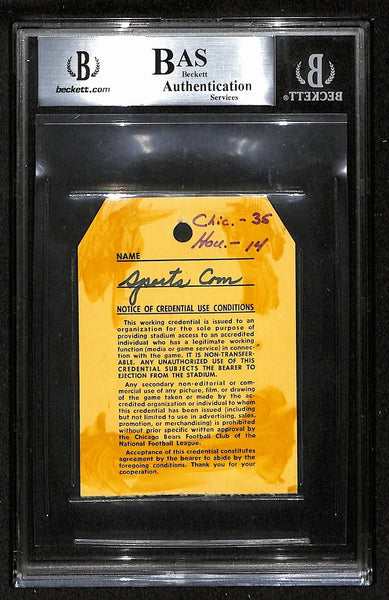 B
beckett.com
BAS
Beckett
Authentication
Services
B
BECKETT
Chic. - 35
Hou. - 14
NAME
Sports Com
NOTICE OF CREDENTIAL USE CONDITIONS
This working credential is issued to an
organization for the sole purpose of
providing stadium access to an accredited
individual who has a legitimate working
function (media or game service) in connec-
tion with the game. IT IS NON-TRANSFER-
ABLE. ANY UNAUTHORIZED USE OF THIS
CREDENTIAL SUBJECTS THE BEARER TO
EJECTION FROM THE STADIUM.
Any secondary non-editorial or com-
mercial use of any picture, film, or drawing
of the game taken or made by the ac-
credited organization or individual to whom
this credential has been issued (including
but not limited to use in advertising, sales,
promotion, or merchandising) is prohibited
without prior specific written approval by
the Chicago Bears Football Club of the
National Football League.
Acceptance of this credential constitutes
agreement by the bearer to abide by the
foregoing conditions. Thank you for your
cooperation.